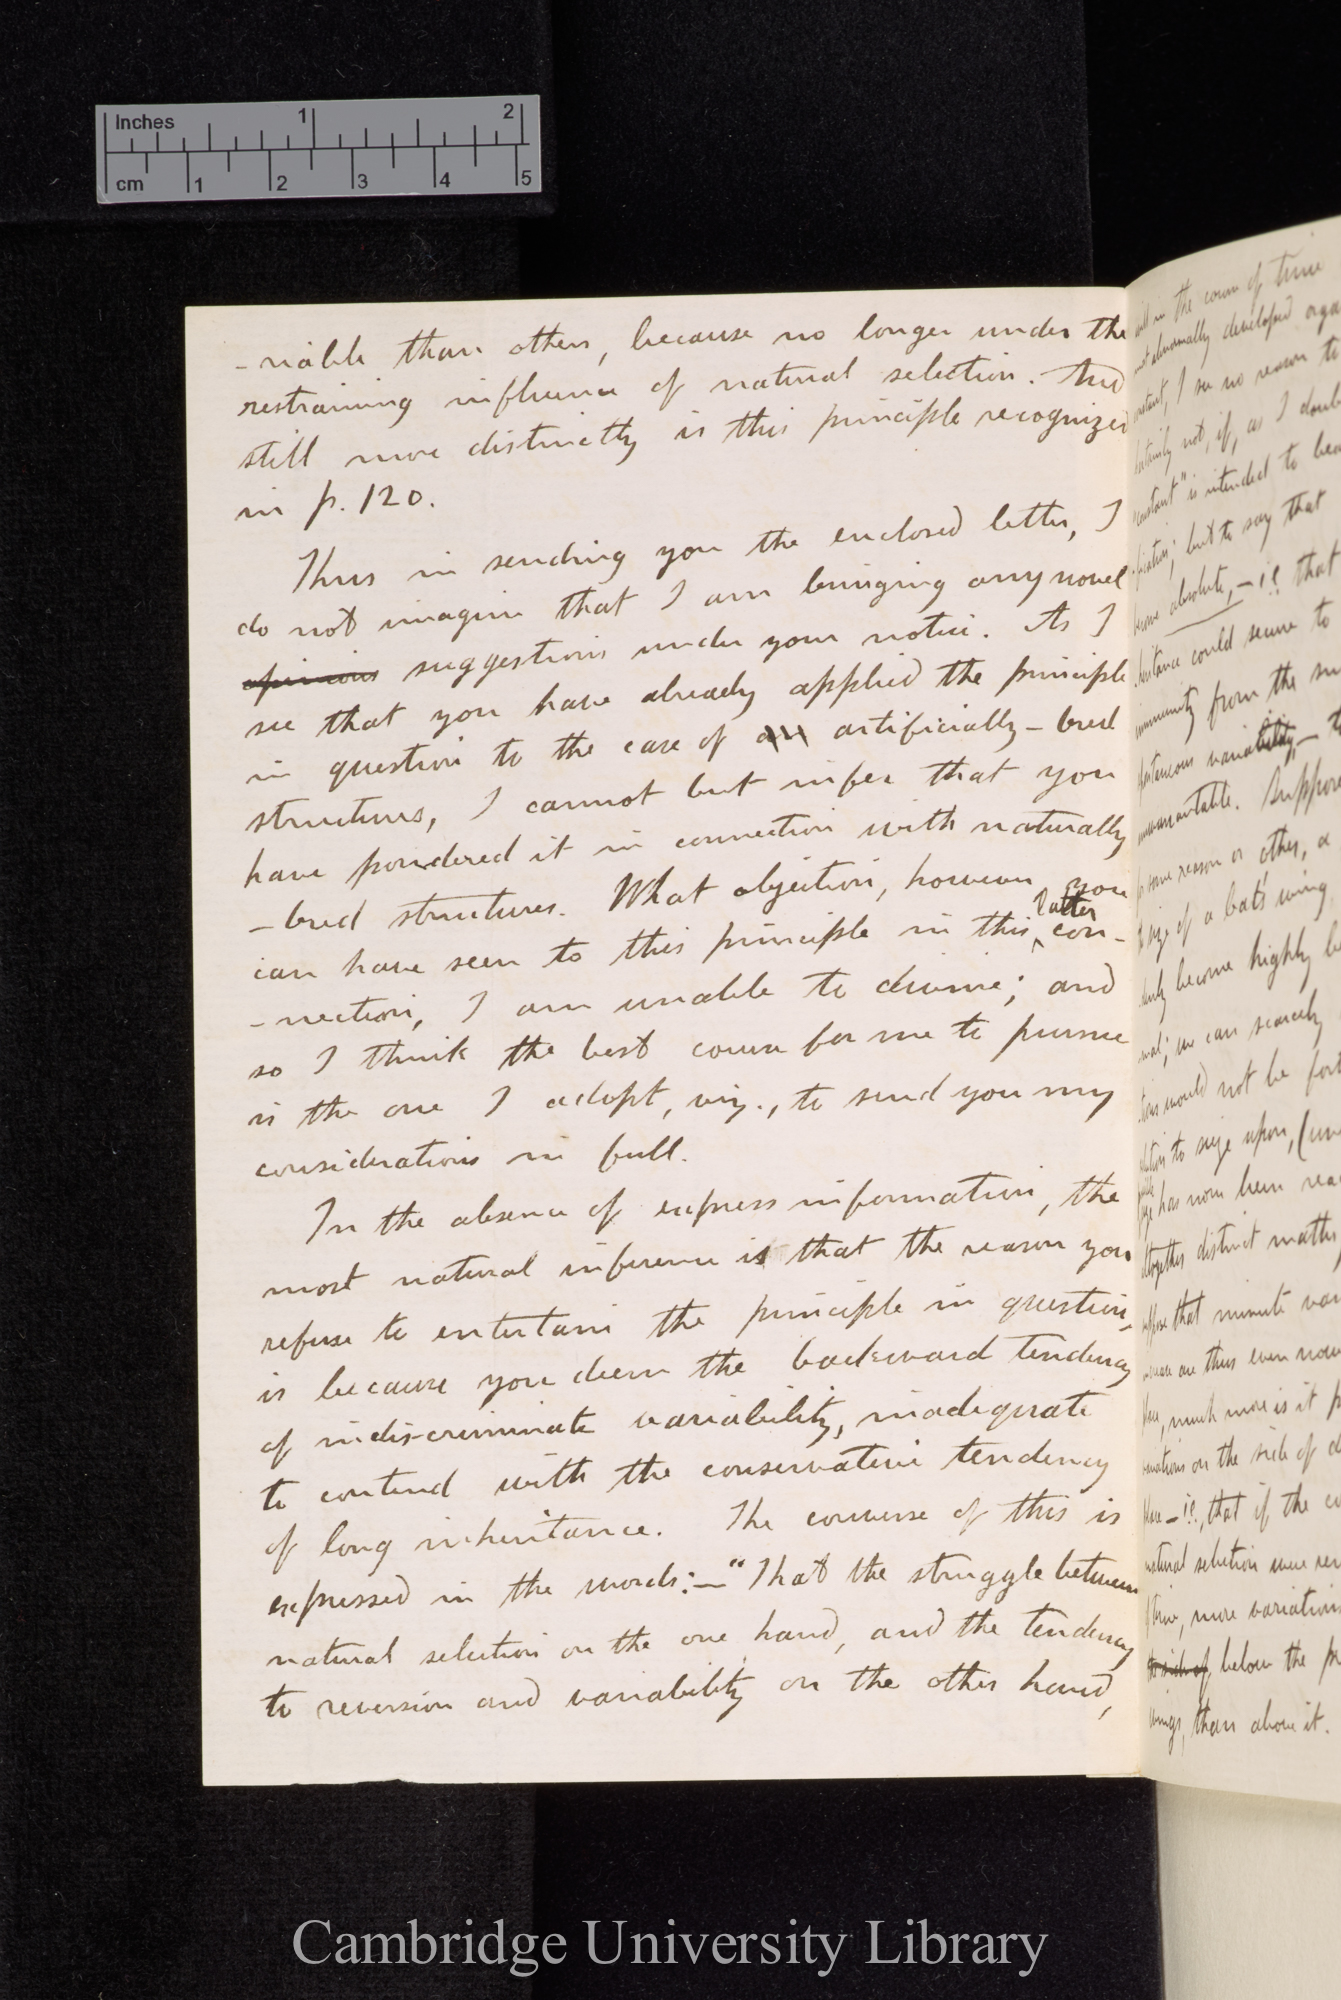 Inches 1 2
cm 1 2 3 4 5
-riable than others, because no longer under the
restraining influence of natural selection. And
still more distinctly is this principle recognized
in p. 120.
Thus in sending you the enclosed letter, I
do not imagine that I am bringing any novel
opinions suggestions under your notice. As I
see that you have already applied the principle
in question to the case of an artificially-bred
structures, I cannot but infer that you
have pondered it in connection with naturally
-bred structures. What objection, however, you
can have seen to this principle in this latter con-
-nection, I am unable to divine; and
so I think the best course for me to pursue
is the one I adopt, viz., to send you my
considerations in full.
In the absence of express information, the
most natural inference is that the reason you
refuse to entertain the principle in question,
is because you deem the backward tendency
of indiscriminate variability, inadequate
to contend with the conservative tendency
of long inheritance. The converse of this is
expressed in the words:—"That the struggle between
natural selection on the one hand, and the tendency
to reversion and variability on the other hand,
will in the course of time
abnormally developed
constant, I see no reason to
certainly not, if, as I
constant" is intended to
but to say that
absolute,—i.e. that
could secure to
immunity from the
variability,—
Suppose
some reason or other, a
of a bat's wing,
become highly
we can scarcely
would not be
to seize upon,
has now been
altogether distinct matter,
suppose that minute
are thus even now
much more is it
on the side of
place—i.e., that if the
natural selection were
time, more variations
the side of below the
wings, than above it.
Cambridge University Library